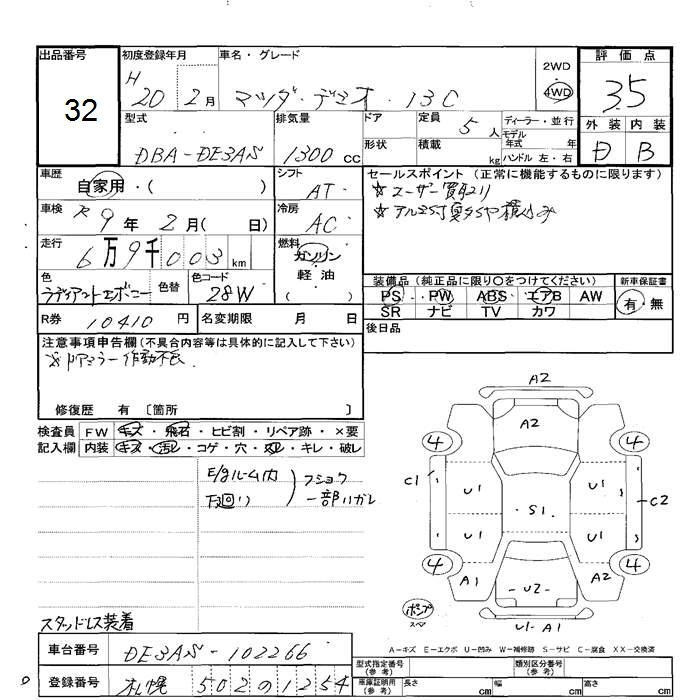 出品番号 初度登録年月 車名・グレード 2WD 評価点
32 H 20 2月 マツダ・デミオ・13C 4WD 3.5
型式 排気量 ドア 定員 5人 ディーラー・並行 外装 内装
DBA-DE3AS 1300cc 形状 積載 kg モデル年式 年 D B
ハンドル 左・右
車歴 シフト セールスポイント (正常に機能するものに限ります)
自家用・( ) AT ☆ユーザー買取り
車検 R9年 2月( 日) 冷房 AC
走行 6万9千003km 燃料 ガソリン
色 色替 色コード 軽油 装備品 (純正品に限り○をつけてください) 新車保証書
ラディアントエボニー 28W ( ) PS・PW・ABS・エアB AW 有・無
SR ナビ TV カワ
R券 10410円 名変期限 月 日 後日品
注意事項申告欄(不具合内容等は具体的に記入して下さい)
※ドアミラー作動不良
修復歴 有 〔箇所 〕
検査員 FW キズ・飛石・ヒビ割・リペア跡・×要
記入欄 内装 キズ・汚レ・コゲ・穴・スレ・キレ・破レ
E/gルーム内
下回り
フショク
一部ハガレ
A2
A2
4 4
C1 U1 S1 U1 C2
U1 U1
4 4
A1 U2 A2
ポンプ
スペア
U1-A1
スタッドレス装着
A-キズ E-エクボ U-凹み W-補修跡 S-サビ C-腐食 XX-交換済
車台番号 DE3AS-102266 型式指定番号(参考) 類別区分番号(参考)
登録番号 札幌 502の1254 車庫証明用(参考) 長さ cm 幅 cm 高さ cm